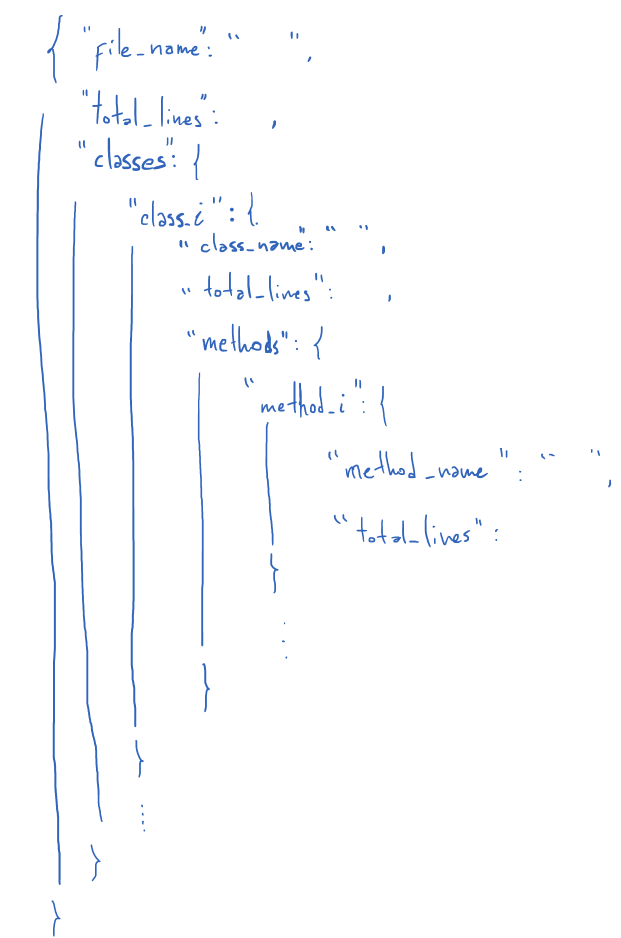 { "file_name": " ",
"total_lines": ,
"classes": {
"class_i": {
"class_name": " ",
"total_lines": ,
"methods": {
"method_i": {
"method_name": " ",
"total_lines":
}
⋮
}
}
⋮
}
}